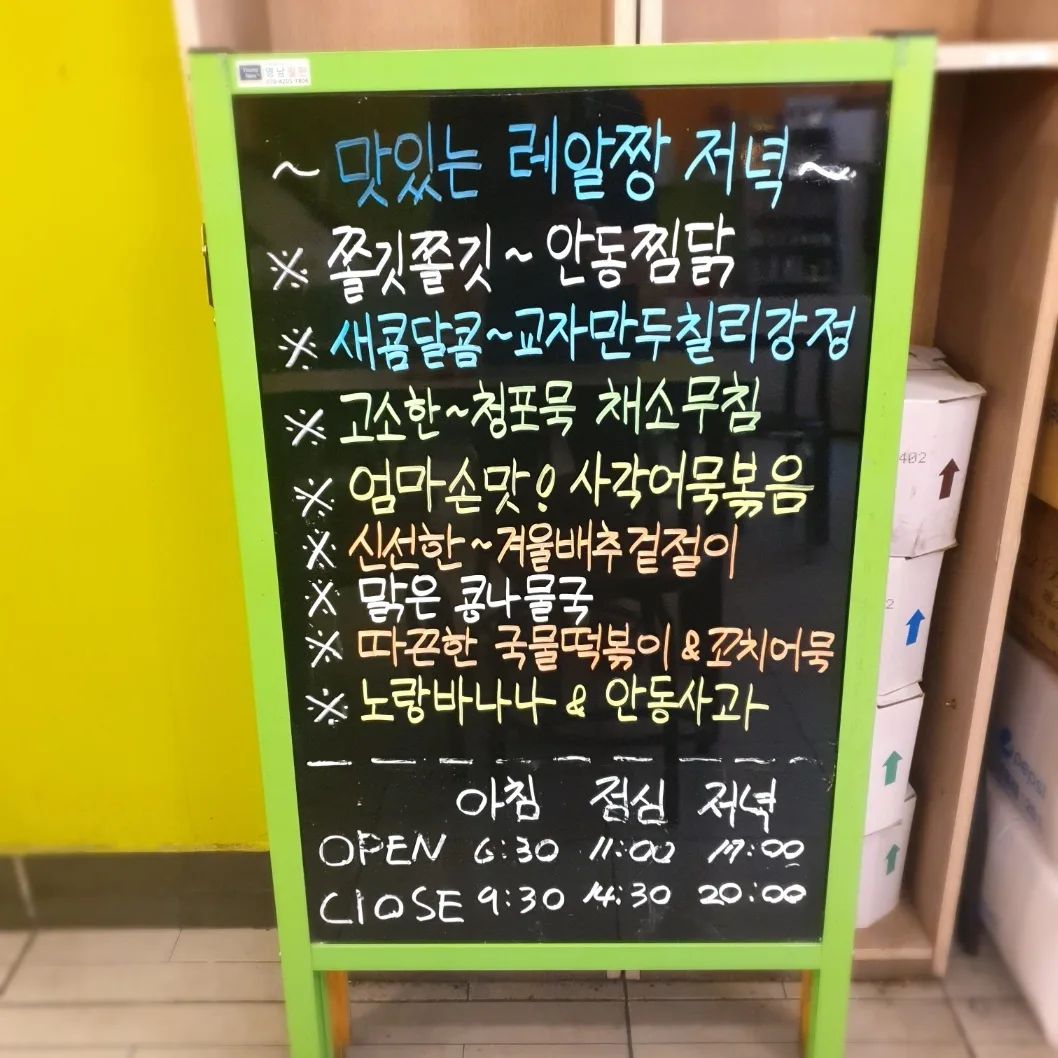 영남칠판
~ 맛있는 레알짱 저녁~
※ 쫄깃쫄깃~안동찜닭
※ 새콤달콤~교자만두칠리강정
※ 고소한~청포묵 채소무침
※ 엄마손맛! 사각어묵볶음
※ 신선한~겨울배추겉절이
※ 맑은 콩나물국
※ 따끈한 국물떡볶이&꼬치어묵
※ 노랑바나나 & 안동사과
아침 점심 저녁
OPEN 6:30 11:00 17:00
ClOSE 9:30 14:30 20:00
402
2
pepsi